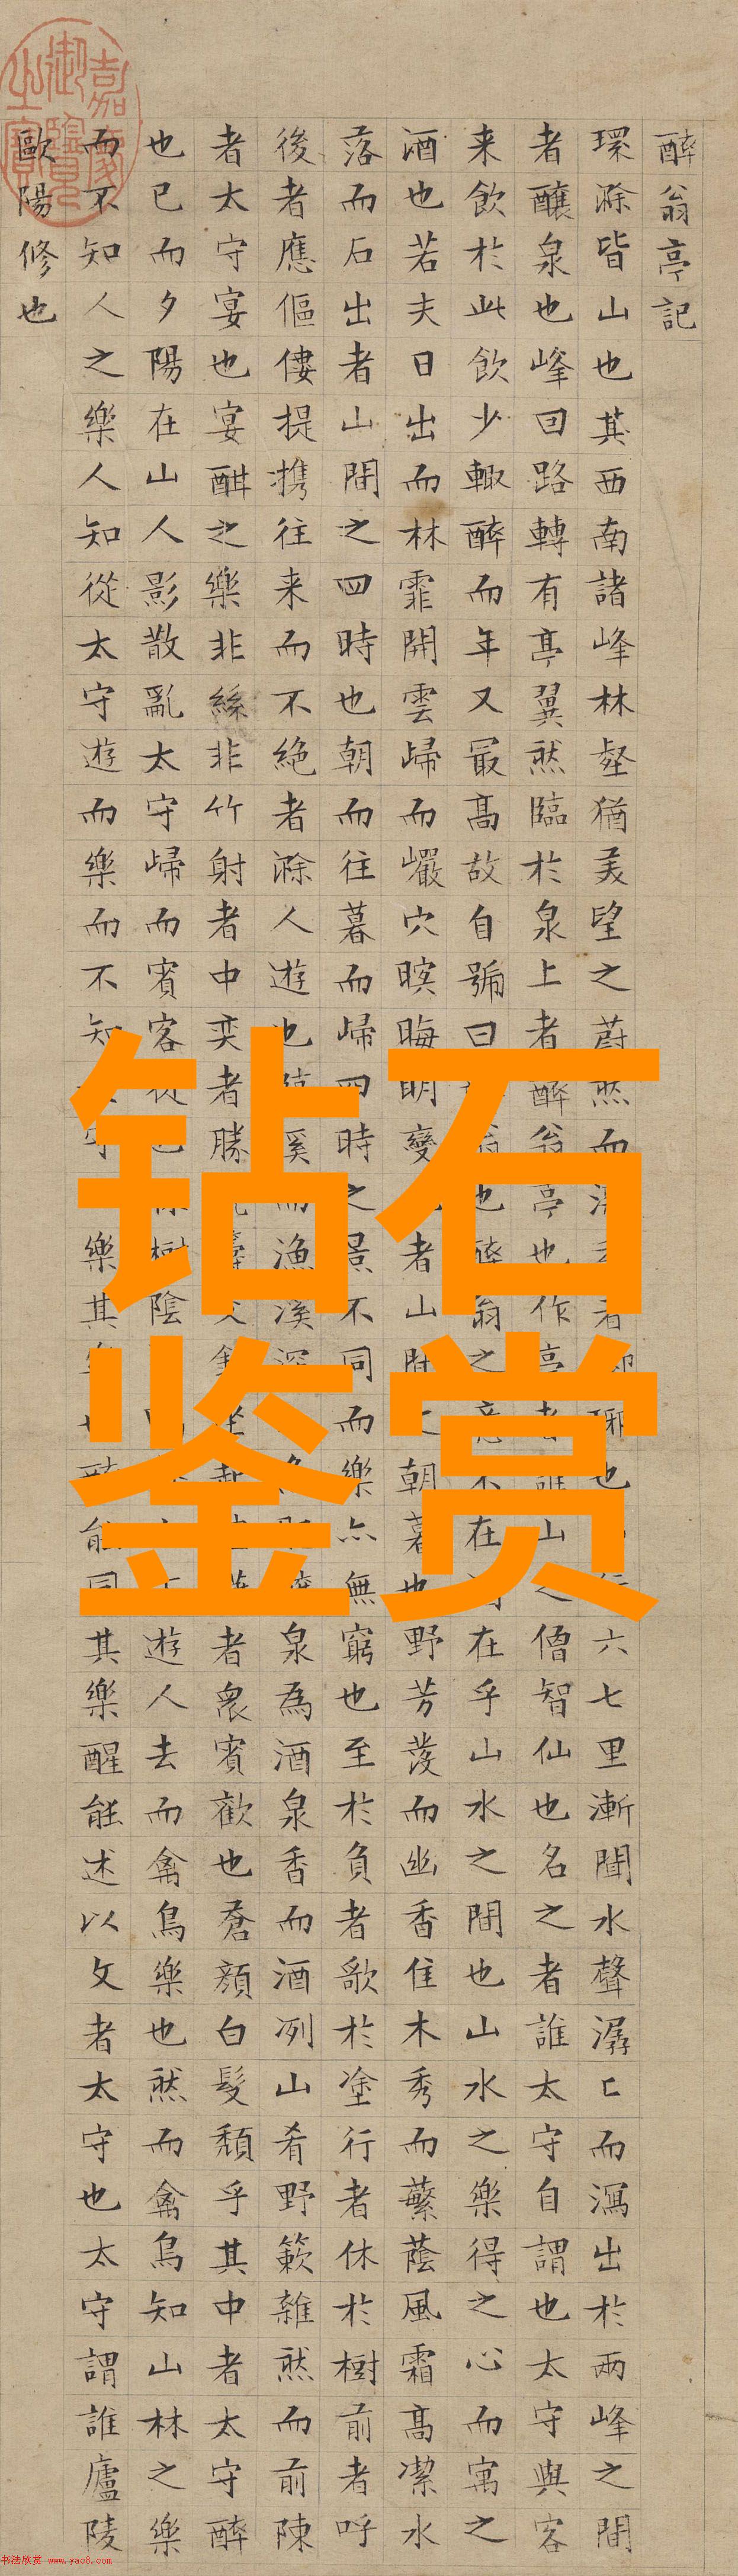 醉翁亭記
環滁皆山也其西南諸峰林壑猶美望之蔚然而者琊也六七里漸聞水聲潺〻而瀉出於兩峰之間
者釀泉也峰回路轉有亭翼然臨於泉上者醉翁亭也作亭者誰山之僧智仙也名之者誰太守自謂也太守與客
来飲於此飲少輙醉而年又最高故自號曰翁也醉翁之意不在在乎山水之間也山水之樂得之心而寓之
酒也若夫日出而林霏開雲歸而巖穴暝晦明變者山間之朝暮也野芳發而幽香佳木秀而蘩蔭風霜高潔水
落而石出者山間之四時也朝而往暮而歸四時之景不同而樂亦無窮也至於負者歌於塗行者休於樹前者呼
後者應傴僂提攜往来而不絶者滁人遊也溪而漁溪深泉為酒泉香而酒冽山肴野蔌雜然而前陳
者太守宴也宴酣之樂非絲非竹射者中奕者勝者衆賓歡也蒼顏白髮頹乎其中者太守醉
也已而夕陽在山人影散亂太守歸而賓客從也樹陰遊人去而禽鳥樂也然而禽鳥知山林之樂
而不知人之樂人知從太守遊而樂而不知守樂其也醉能同其樂醒能述以文者太守也太守謂誰廬陵
歐陽修也
嘉慶御覽之寶
钻石
鉴赏
书法欣赏 www.yac8.com